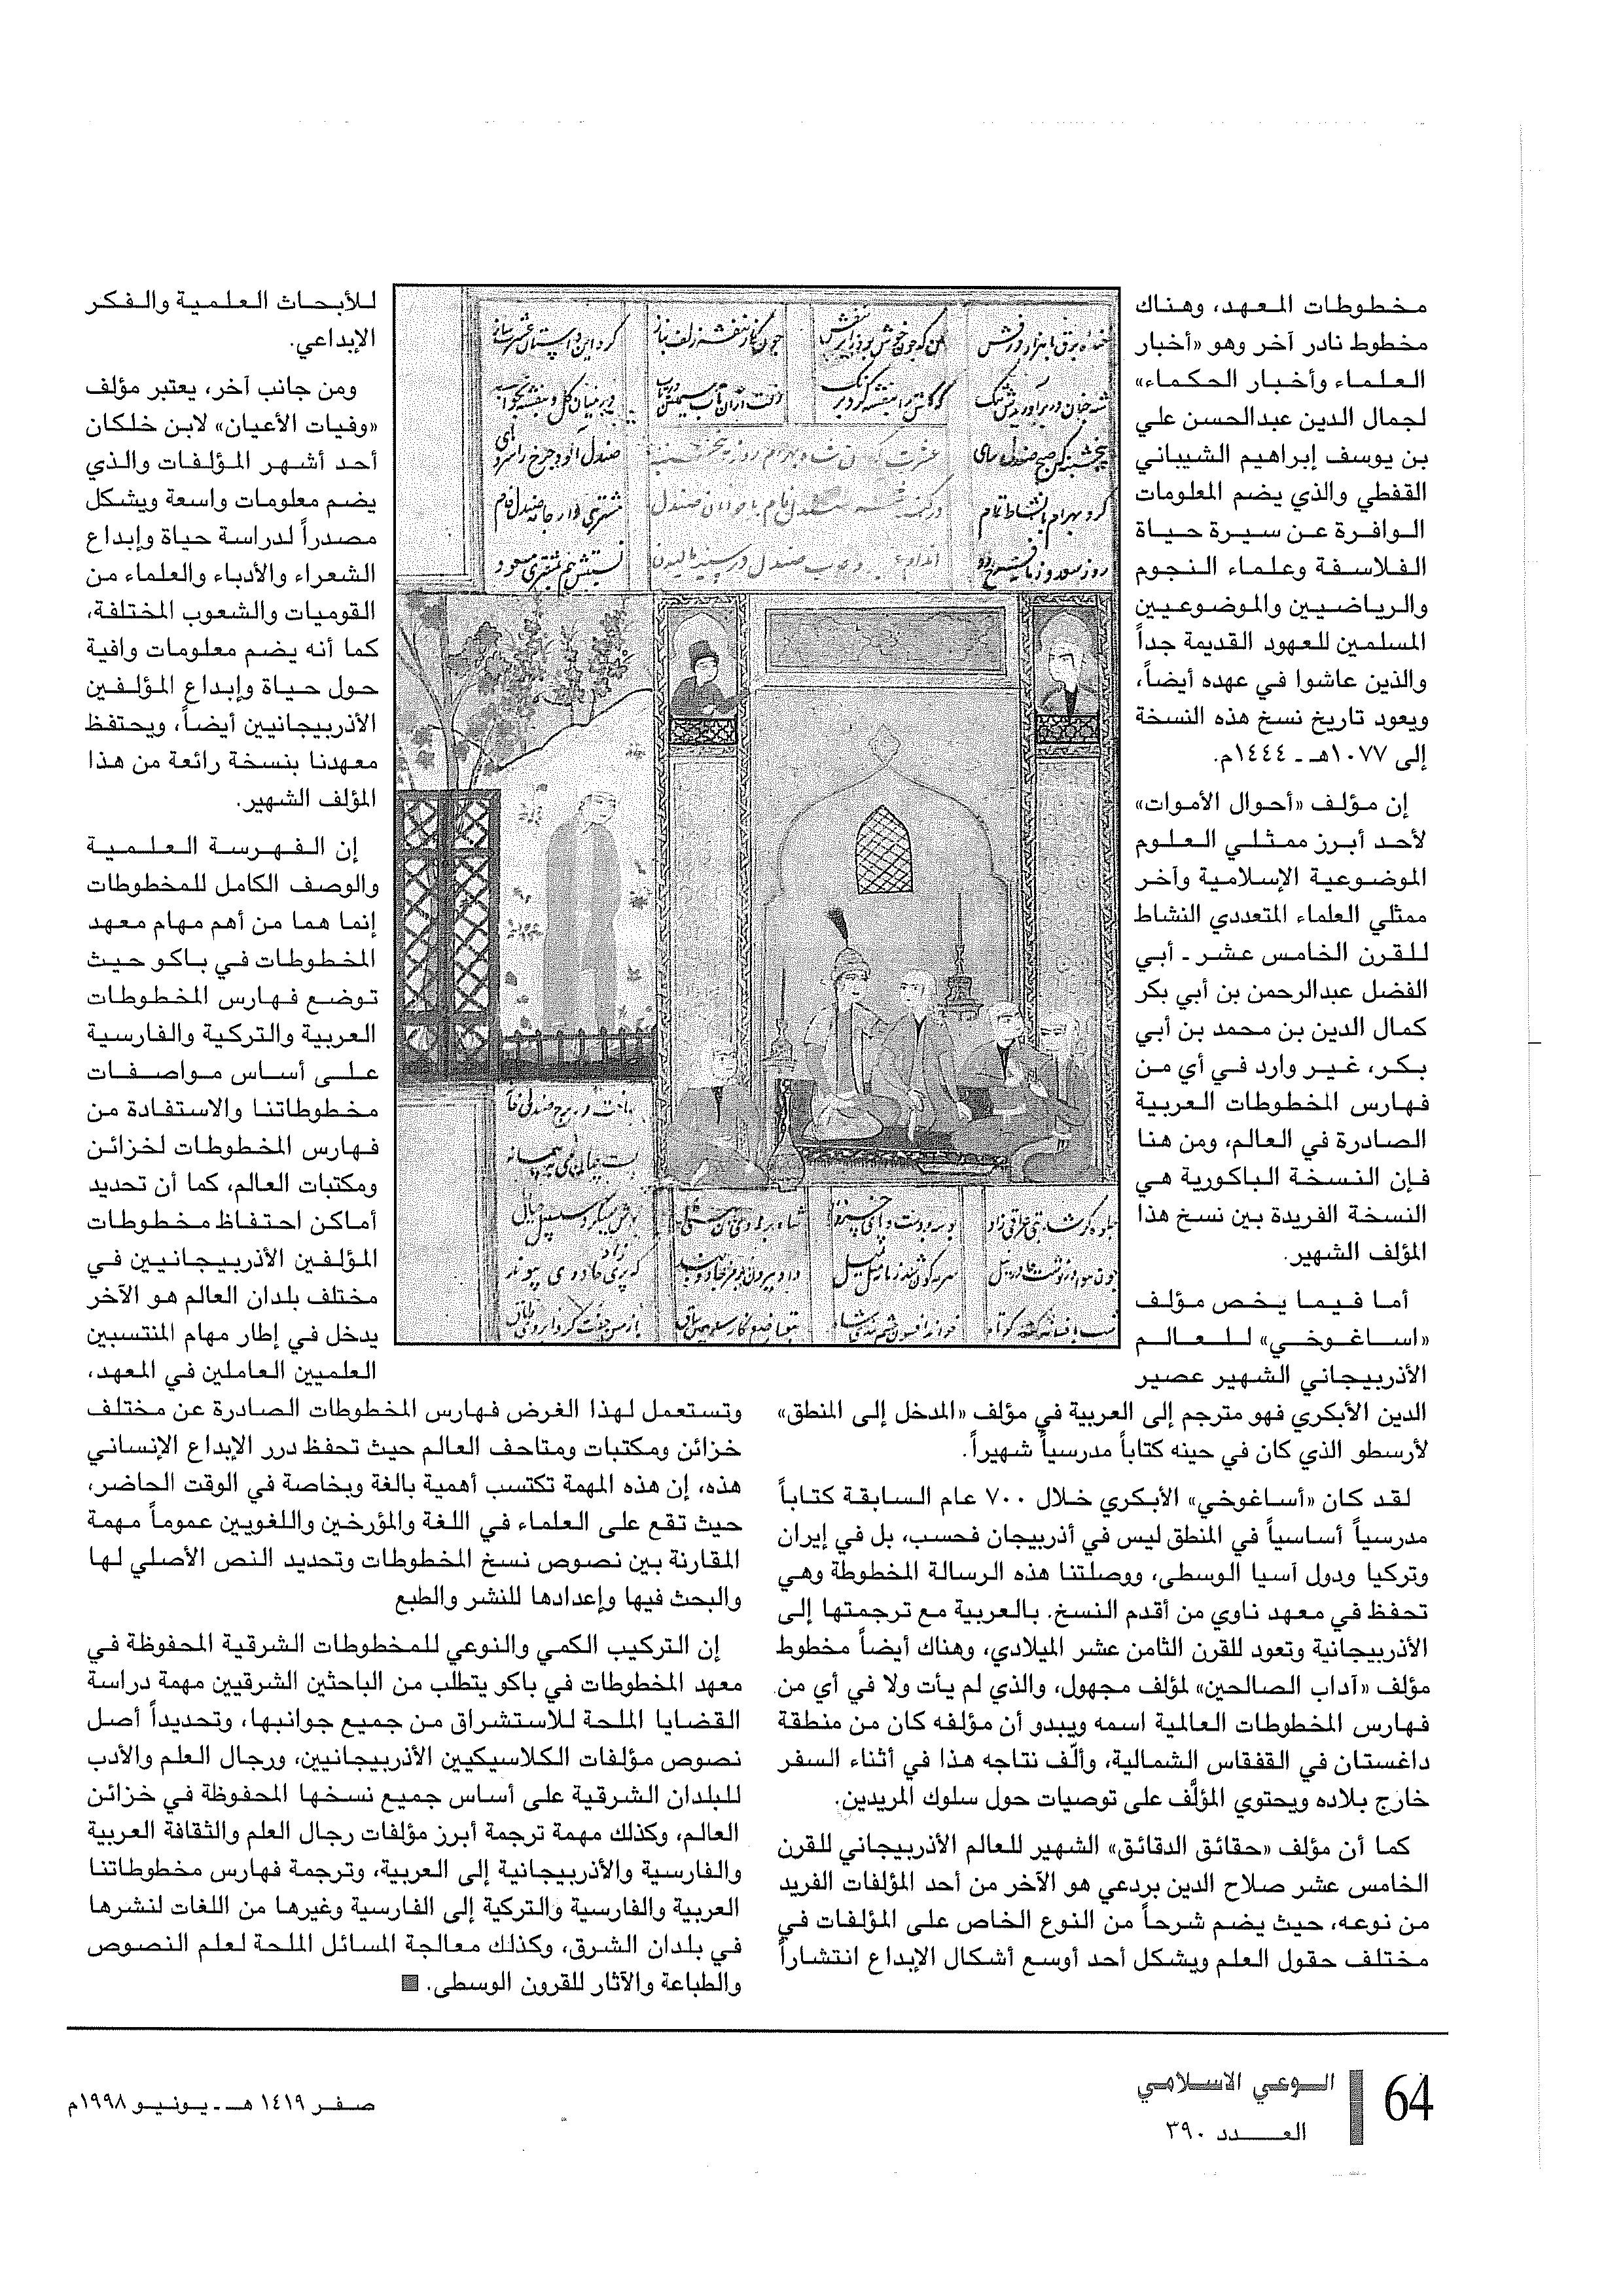 مخطوطات المعهد، وهناك
مخطوط نادر آخر وهو «أخبار
العلماء وأخبار الحكماء»
لجمال الدين عبدالحسن علي
بن يوسف إبراهيم الشيباني
القفطي والذي يضم المعلومات
الوافرة عن سيرة حياة
الفلاسفة وعلماء النجوم
والرياضيين والموضوعيين
المسلمين للعهود القديمة جداً
والذين عاشوا في عهده أيضاً،
ويعود تاريخ نسخ هذه النسخة
إلى ١٠٧٧هـ - ١٤٤٤م.
إن مؤلف «أحوال الأموات»
لأحد أبرز ممثلي العلوم
الموضوعية الإسلامية وآخر
ممثلي العلماء المتعددي النشاط
للقرن الخامس عشر - أبي
الفضل عبدالرحمن بن أبي بكر
كمال الدين بن محمد بن أبي
بكر، غير وارد في أي من
فهارس المخطوطات العربية
الصادرة في العالم، ومن هنا
فإن النسخة الباكورية هي
النسخة الفريدة بين نسخ هذا
المؤلف الشهير.
أما فيما يخص مؤلف
«اساغوخي» للعالم
الأذربيجاني الشهير عصير
الدين الأبكري فهو مترجم إلى العربية في مؤلف «المدخل إلى المنطق»
لأرسطو الذي كان في حينه كتاباً مدرسياً شهيراً.
لقد كان «أساغوخي» الأبكري خلال ٧٠٠ عام السابقة كتاباً
مدرسياً أساسياً في المنطق ليس في أذربيجان فحسب، بل في إيران
وتركيا ودول آسيا الوسطى، ووصلتنا هذه الرسالة المخطوطة وهي
تحفظ في معهد ناوي من أقدم النسخ. بالعربية مع ترجمتها إلى
الأذربيجانية وتعود للقرن الثامن عشر الميلادي، وهناك أيضاً مخطوط
مؤلف «آداب الصالحين» لمؤلف مجهول، والذي لم يأت ولا في أي من
فهارس المخطوطات العالمية اسمه ويبدو أن مؤلفه كان من منطقة
داغستان في القفقاس الشمالية، وألّف نتاجه هذا في أثناء السفر
خارج بلاده ويحتوي المؤلَّف على توصيات حول سلوك المريدين.
كما أن مؤلف «حقائق الدقائق» الشهير للعالم الأذربيجاني للقرن
الخامس عشر صلاح الدين بردعي هو الآخر من أحد المؤلفات الفريد
من نوعه، حيث يضم شرحاً من النوع الخاص على المؤلفات في
مختلف حقول العلم ويشكل أحد أوسع أشكال الإبداع انتشاراً
للأبحاث العلمية والفكر
الإبداعي.
ومن جانب آخر، يعتبر مؤلف
«وفيات الأعيان» لابن خلكان
أحد أشهر المؤلفات والذي
يضم معلومات واسعة ويشكل
مصدراً لدراسة حياة وإبداع
الشعراء والأدباء والعلماء من
القوميات والشعوب المختلفة،
كما أنه يضم معلومات وافية
حول حياة وإبداع المؤلفين
الأذربيجانيين أيضاً، ويحتفظ
معهدنا بنسخة رائعة من هذا
المؤلف الشهير.
إن الفهرسة العلمية
والوصف الكامل للمخطوطات
إنما هما من أهم مهام معهد
المخطوطات في باكو حيث
توضع فهارس المخطوطات
العربية والتركية والفارسية
على أساس مواصفات
مخطوطاتنا والاستفادة من
فهارس المخطوطات لخزائن
ومكتبات العالم، كما أن تحديد
أماكن احتفاظ مخطوطات
المؤلفين الأذربيجانيين في
مختلف بلدان العالم هو الآخر
يدخل في إطار مهام المنتسبين
العلميين العاملين في المعهد،
وتستعمل لهذا الغرض فهارس المخطوطات الصادرة عن مختلف
خزائن ومكتبات ومتاحف العالم حيث تحفظ درر الإبداع الإنساني
هذه، إن هذه المهمة تكتسب أهمية بالغة وبخاصة في الوقت الحاضر،
حيث تقع على العلماء في اللغة والمؤرخين واللغويين عموماً مهمة
المقارنة بين نصوص نسخ المخطوطات وتحديد النص الأصلي لها
والبحث فيها وإعدادها للنشر والطبع
إن التركيب الكمي والنوعي للمخطوطات الشرقية المحفوظة في
معهد المخطوطات في باكو يتطلب من الباحثين الشرقيين مهمة دراسة
القضايا الملحة للاستشراق من جميع جوانبها، وتحديداً أصل
نصوص مؤلفات الكلاسيكيين الأذربيجانيين، ورجال العلم والأدب
للبلدان الشرقية على أساس جميع نسخها المحفوظة في خزائن
العالم، وكذلك مهمة ترجمة أبرز مؤلفات رجال العلم والثقافة العربية
والفارسية والأذربيجانية إلى العربية، وترجمة فهارس مخطوطاتنا
العربية والفارسية والتركية إلى الفارسية وغيرها من اللغات لنشرها
في بلدان الشرق، وكذلك معالجة المسائل الملحة لعلم النصوص
والطباعة والآثار للقرون الوسطى.
64
الوعي الاسلامي
العدد ٣٩٠
صفر ١٤١٩ هـ - يونيو ١٩٩٨م